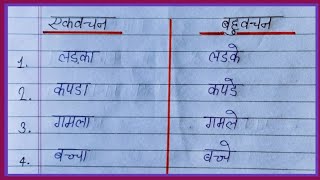 एकवचन बहुवचन
1. लडका लडके
2. कपडा कपडे
3. गमला गमले
4. बच्चा बच्चे